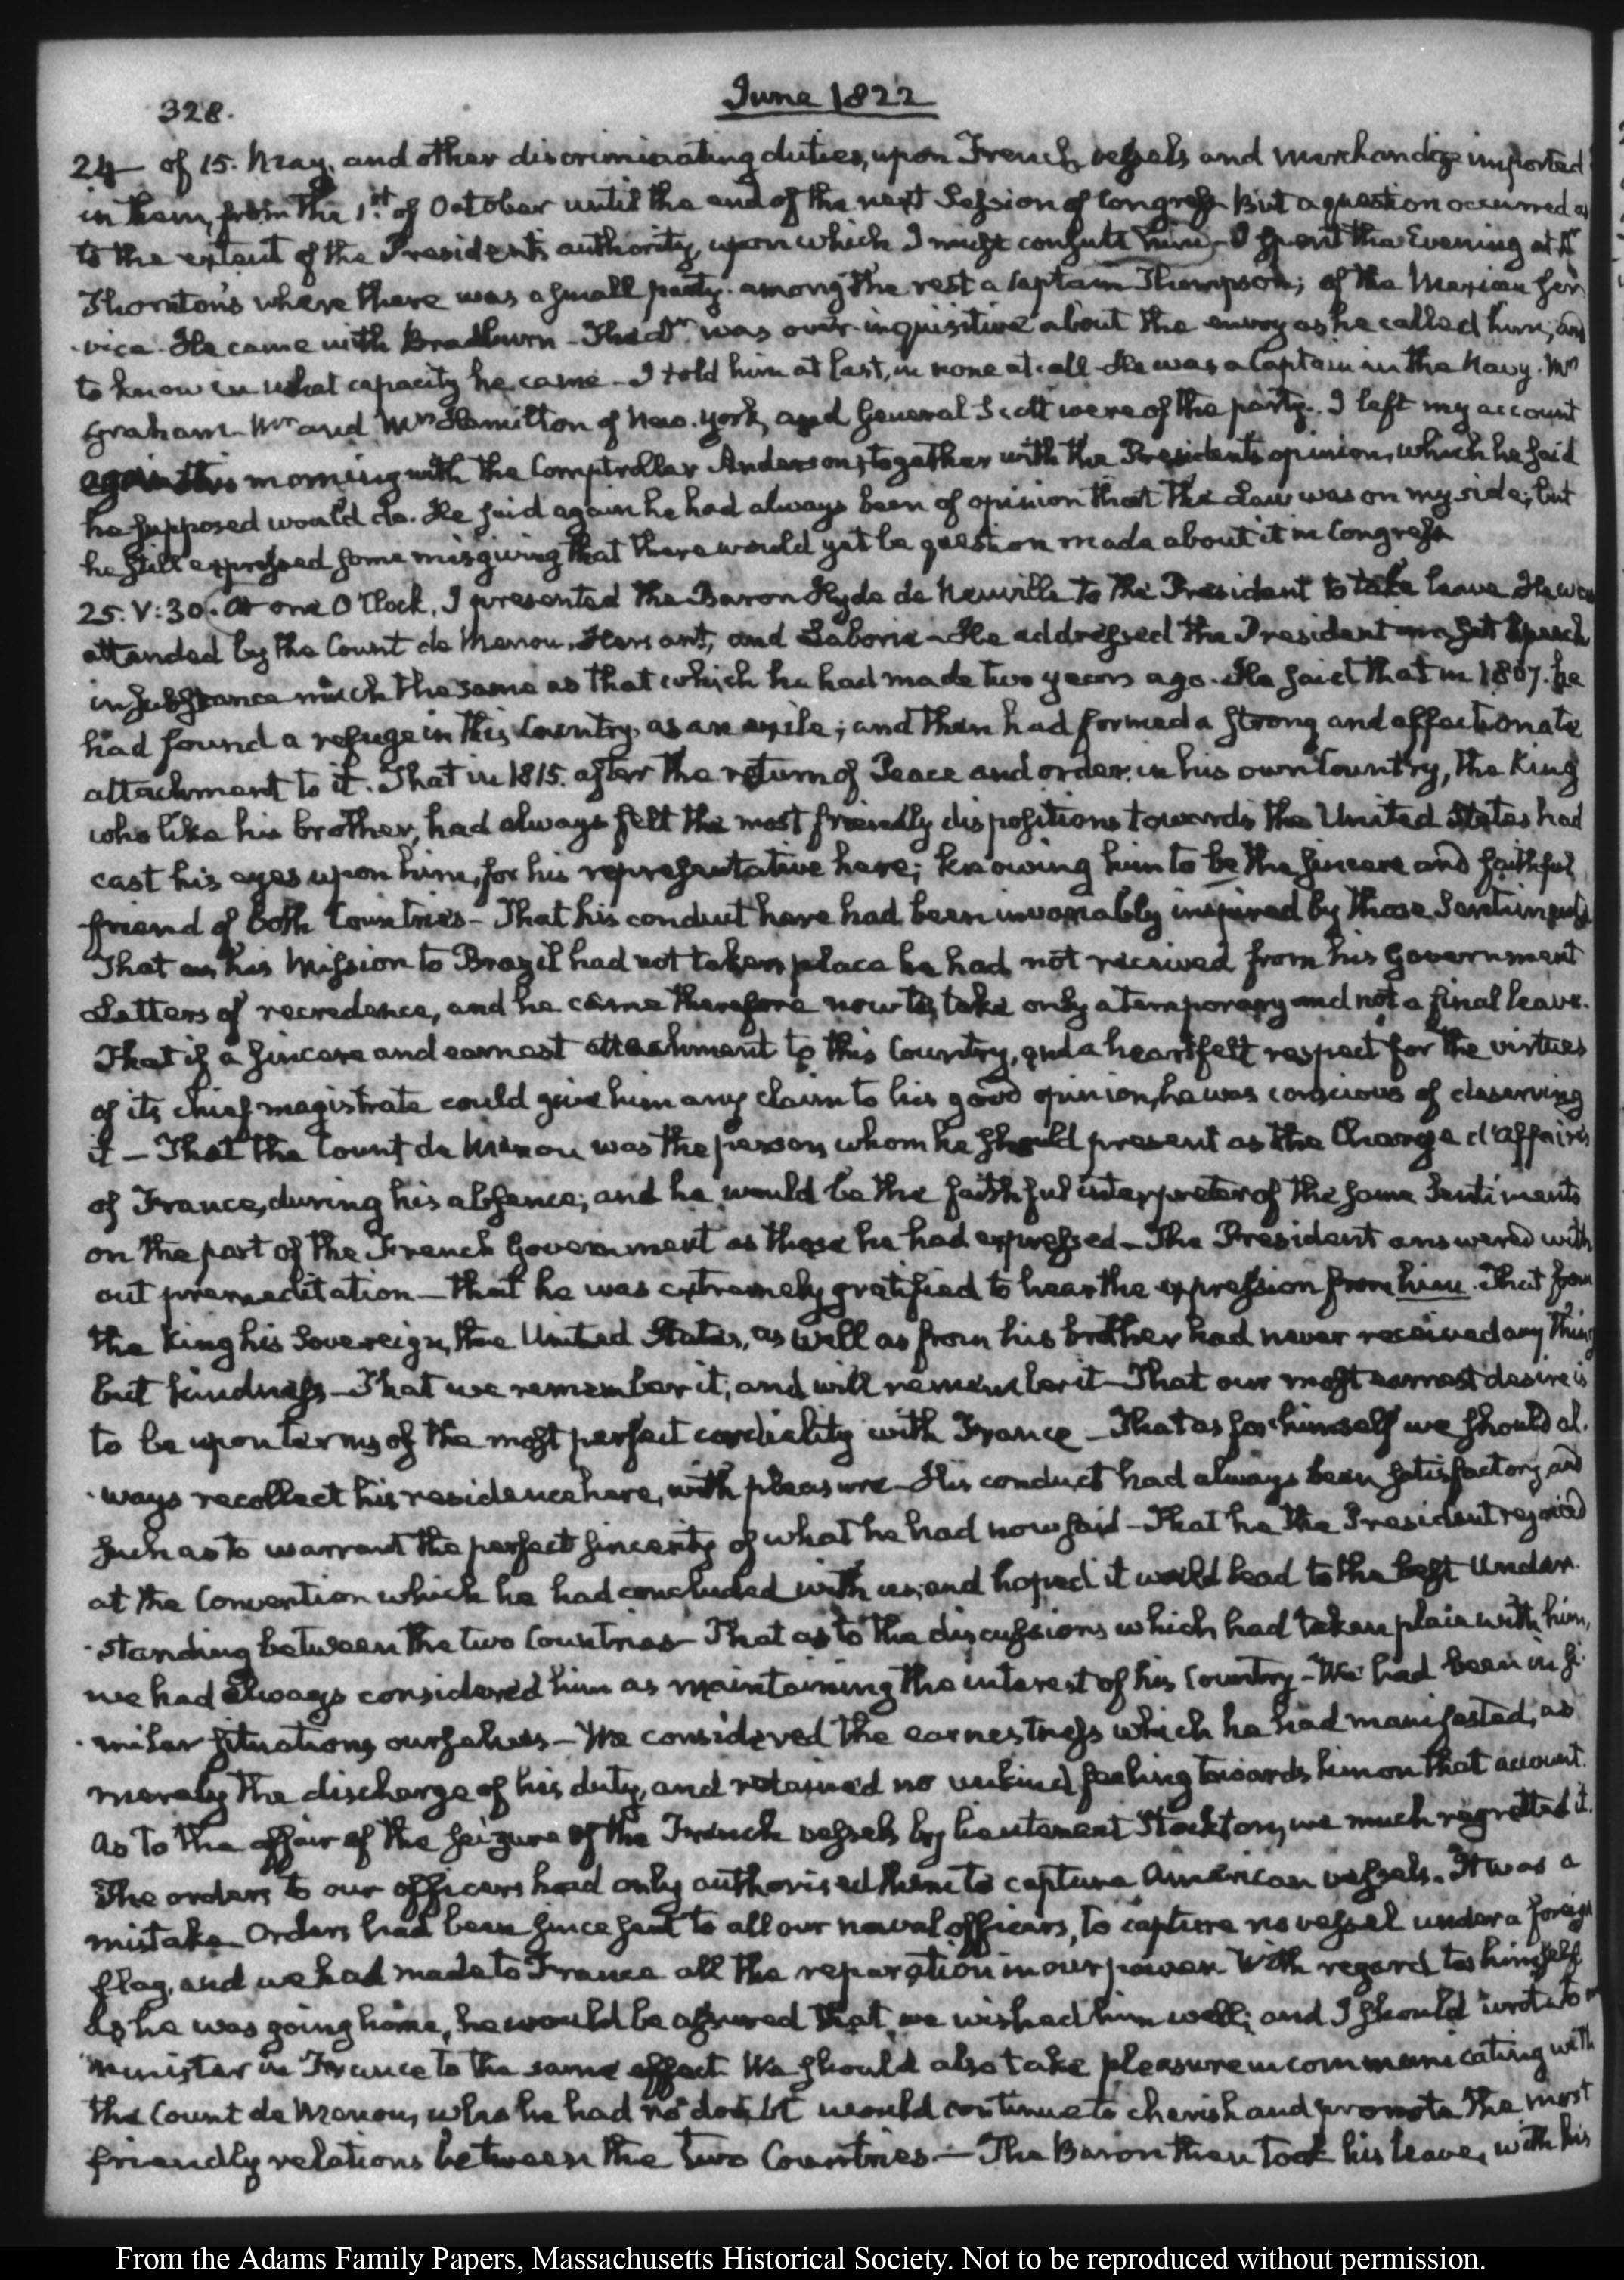 328.
June 1822
24— of 15. May, and other discriminating duties, upon French vessels and merchandize imported
in them, from the 1st of October until the end of the next Session of Congress But a question occurred as
to the extent of the Presidents authority, upon which I must consult him— I spent the Evening at Dr
Thornton's where there was a small party. among the rest a Captain Thompson; of the Mexican Ser
-vice. He came with Bradburn— The Dr was over-inquisitive about the envoy as he called him, and
to know in what capacity he came— I told him at last, in none at all— He was a Captain in the Navy. Mrs
Graham— Mr and Mrs Hamilton of New-York, and General Scott were of the party.. I left my account
again this morning with the Comptroller Anderson, together with the Presidents opinion, which he said
he supposed would do. He said again he had always been of opinion that the Law was on my side; but
he still expressed some misgiving that there would yet be question made about it in Congress
25. V:30. At one O'Clock, I presented the Baron Hyde de Neuville to the President to take leave He was
attended by the Count de Menou, Hersant, and Laborie— He addressed the President in a set Speech
in substance much the same as that which he had made two years ago. He said that in 1807. he
had found a refuge in this Country, as an exile; and then had formed a strong and affectionate
attachment to it. That in 1815. after the return of Peace and order in his own Country, the King
who like his brother, had always felt the most friendly dispositions towards the United States had
cast his eyes upon him, for his representative here; knowing him to be the sincere and faithful
friend of both Countries— That his conduct here had been invariably inspired by those Sentiments
That as his Mission to Brazil had not taken place he had not received from his Government
Letters of recredence, and he came therefore now to take only a temporary and not a final leave.
That if a sincere and earnest attachment to this Country, and a heartfelt respect for the virtues
of its chief magistrate could give him any claim to his good opinion, he was conscious of deserving
it— That the Count de Menou was the person whom he should present as the Charge d'Affaires
of France, during his absence; and he would be the faithful interpreter of the same Sentiments
on the part of the French Government as those he had expressed— The President answered with
out premeditation— that he was extremely gratified to hear the expression from him. That from
the King his Sovereign, the United States, as well as from his brother had never received any thing
but kindness— That we remember it, and will remember it— That our most earnest desire is
to be upon terms of the most perfect cordiality with France— That as for himself we should al-
-ways recollect his residence here, with pleasure— His conduct had always been satisfactory and
such as to warrant the perfect sincerity of what he had now said— That he the President rejoiced
at the Convention which he had concluded with us, and hoped it would lead to the best Under-
-standing between the two Countries— That as to the discussions which had taken place with him,
we had always considered him as maintaining the interest of his Country— We had been in si-
-milar situations ourselves— We considered the earnestness which he had manifested, as
merely the discharge of his duty, and retained no unkind feeling towards him on that account.
As to the affair of the seizure of the French vessels by Lieutenant Stockton, we much regretted it.
The orders to our officers had only authorised them to capture American vessels. It was a
mistake— Orders had been since sent to all our naval officers, to capture no vessel under a foreign
flag, and we had made to France all the reparation in our power With regard to himself
As he was going home, he would be assured that we wished him well; and I should write to our
Minister in France to the same effect. We should also take pleasure in communicating with
the Count de Menou, who he had no doubt would continue to cherish and promote the most
friendly relations between the two Countries— The Baron then took his leave, with his
From the Adams Family Papers, Massachusetts Historical Society. Not to be reproduced without permission.